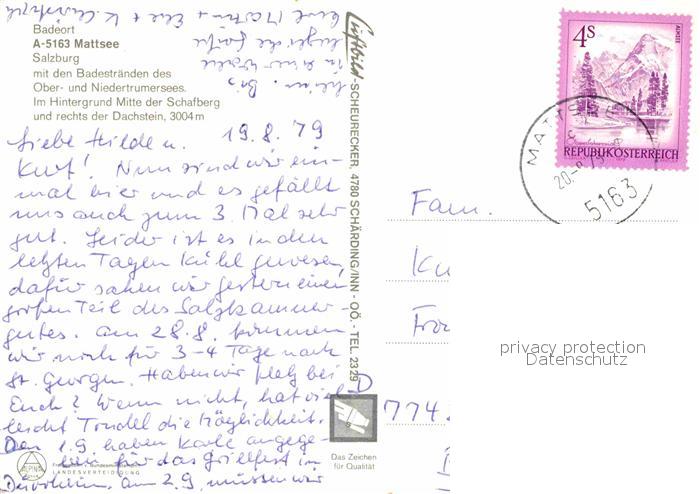 Badeort
A-5163 Mattsee
Salzburg
mit den Badestränden des
Ober- und Niedertrumersees.
Im Hintergrund Mitte der Schafberg
und rechts der Dachstein, 3004 m
19.8.79
Liebe Hilde u.
Kurt! Nun sind wir ein-
mal hier und es gefällt
uns auch zum 3. Mal sehr
gut. Leider ist es in den
letzten Tagen kühl gewesen,
dafür sahen wir gestern einen
großen Teil des Salzkammer-
gutes. Am 28.8. kommen
wir noch für 3-4 Tage nach
St. Georgen. Haben wir Platz bei
Euch? Wenn nicht, hat viel-
leicht Trudel die Möglichkeit.
Den 1.9 haben Karle angege-
ben für das Grillfest in
Dürrheim. Am 2.9. müssen wir
Luftbild-SCHEURECKER, 4780 SCHÄRDING/INN - OÖ. - TEL. 2329
ALPINA
LANDESVERTEIDIGUNG
Das Zeichen
für Qualität
4S
ALMSEE
REPUBLIK ÖSTERREICH
MATTSEE
20.-8.79
5163
Fam.
Ku
D
774
privacy protection
Datenschutz